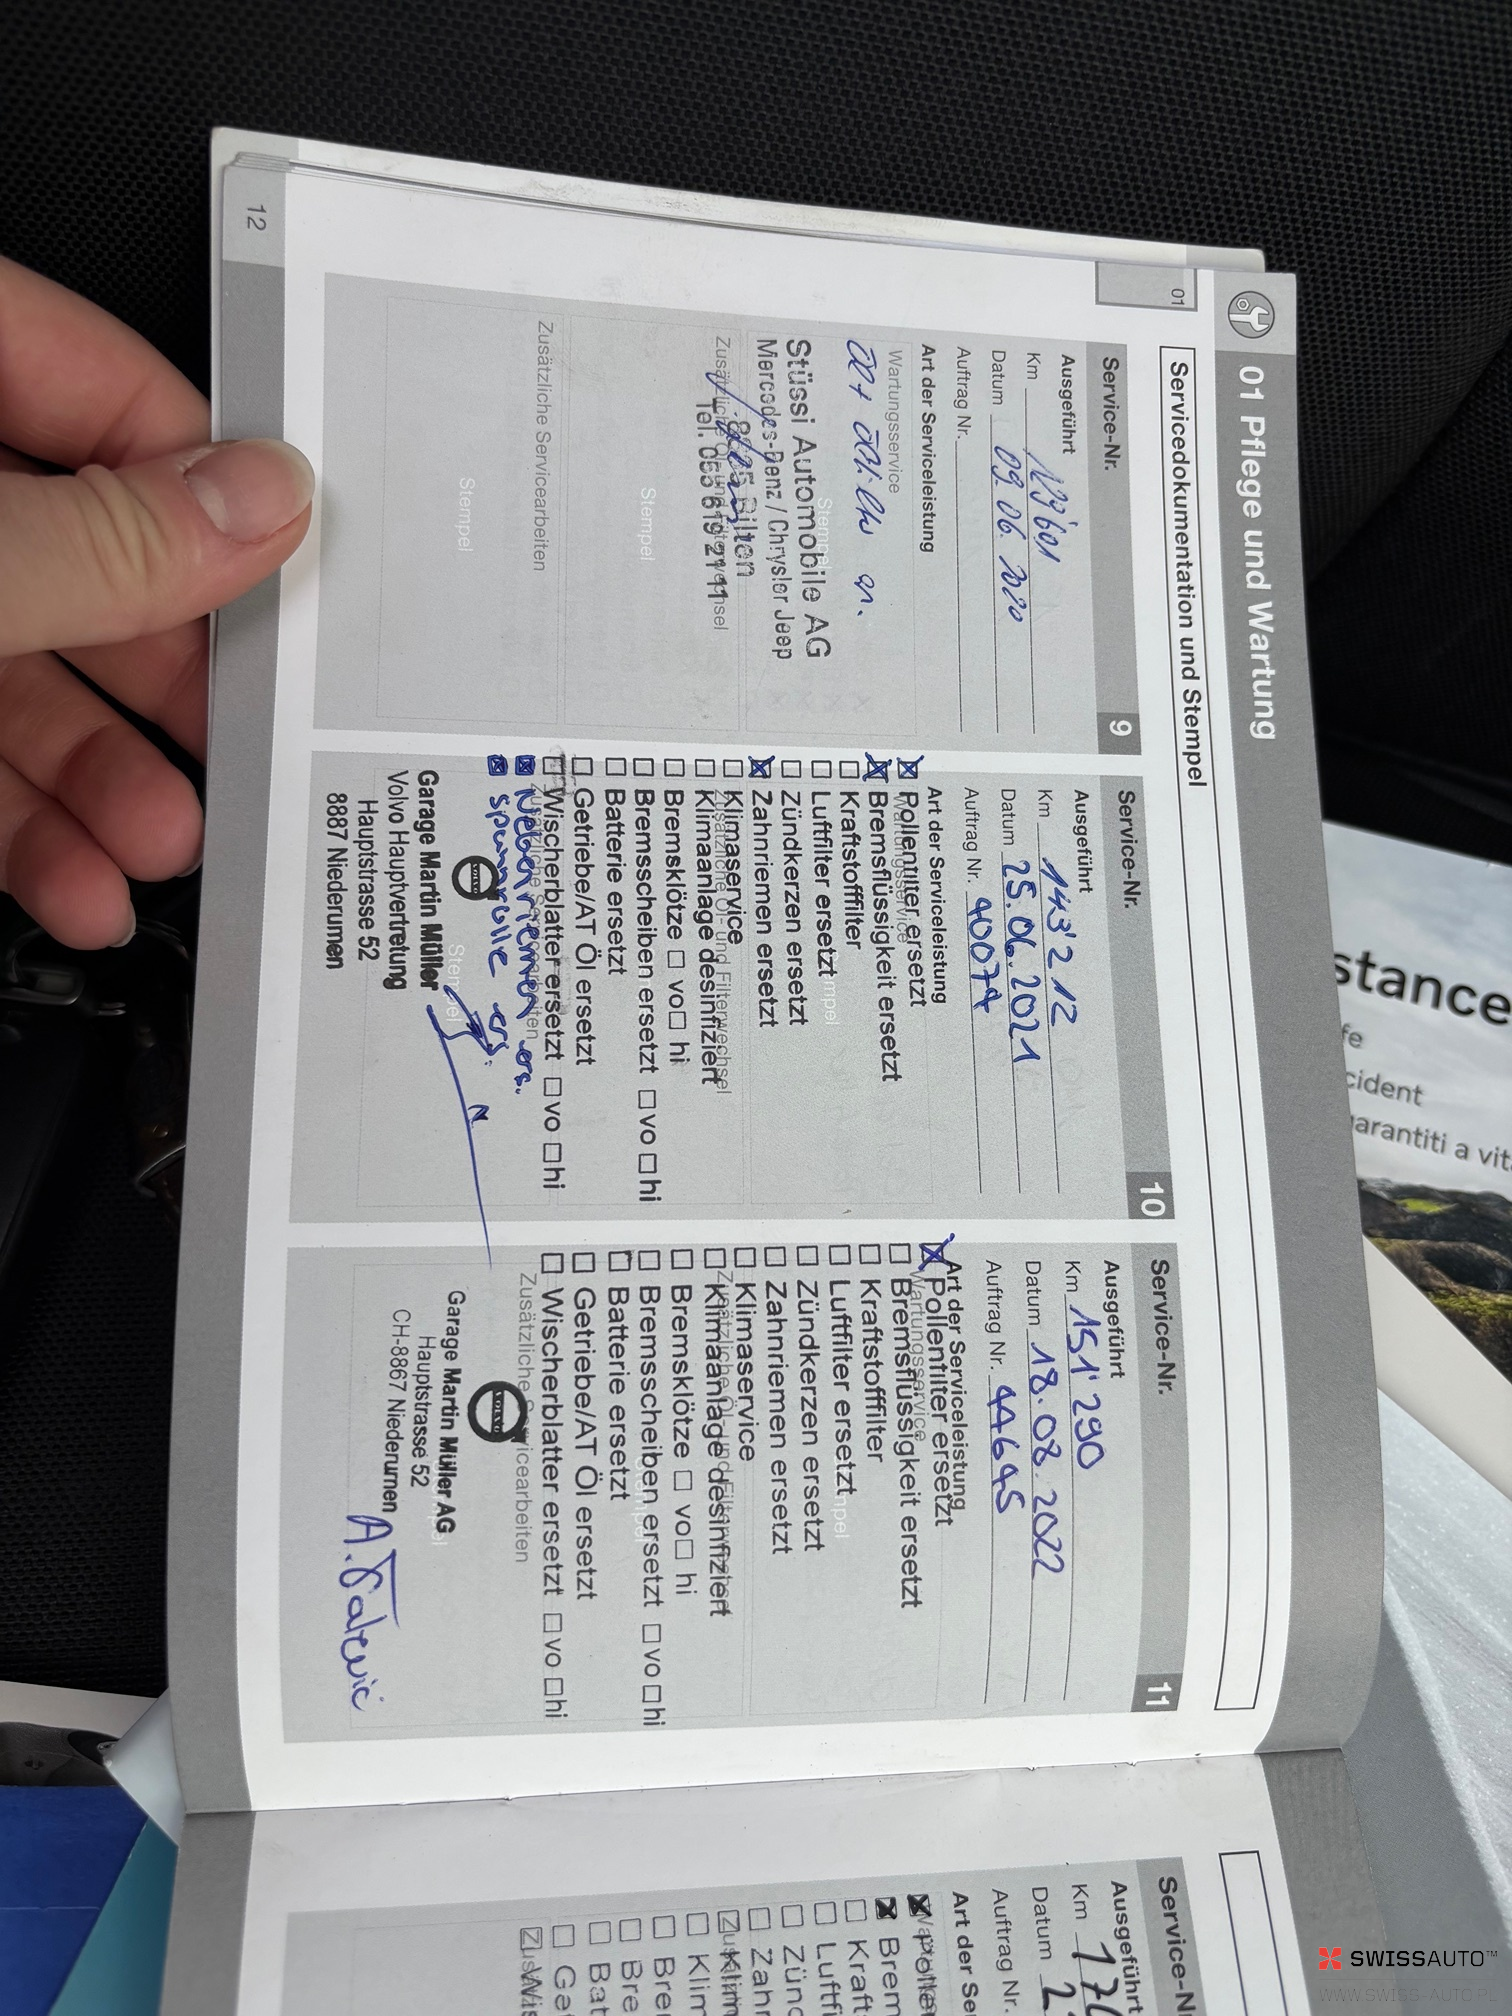 01 Pflege und Wartung
Servicedokumentation und Stempel
01
Service-Nr. 9
Ausgeführt
Km 139'601
Datum 09.06.2020
Auftrag Nr.
Art der Serviceleistung
Wartungsservice
Stempel
Stüssi Automobile AG
Mercedes-Benz / Chrysler Jeep
8865 Bilten
Zusätzliche Öl- und Filterwechsel
Tel. 055 619 21 11
Stempel
Zusätzliche Servicearbeiten
Stempel
12
Service-Nr. 10
Ausgeführt
Km 143'212
Datum 25.06.2021
Auftrag Nr. 40074
Art der Serviceleistung
Wartungsservice
☒ Pollenfilter ersetzt
☒ Bremsflüssigkeit ersetzt
☐ Kraftstofffilter
☐ Luftfilter ersetzt
☐ Zündkerzen ersetzt
☒ Zahnriemen ersetzt
☐ Klimaservice
Zusätzliche Öl- und Filterwechsel
☐ Klimaanlage desinfiziert
☐ Bremsklötze ☐ vo ☐ hi
☐ Bremsscheiben ersetzt ☐ vo ☐ hi
☐ Batterie ersetzt
☐ Getriebe/AT Öl ersetzt
☐ Wischerblatter ersetzt ☐ vo ☐ hi
Zusätzliche Servicearbeiten
☒ Nebenriemen ers.
☒ Spannrolle ers.
VOLVO
Stempel
Garage Martin Müller
Volvo Hauptvertretung
Hauptstrasse 52
8887 Niederurnen
Service-Nr. 11
Ausgeführt
Km 151'290
Datum 18.08.2022
Auftrag Nr. 44645
Art der Serviceleistung
Wartungsservice
☒ Pollenfilter ersetzt
☐ Bremsflüssigkeit ersetzt
☐ Kraftstofffilter
☐ Luftfilter ersetzt
☐ Zündkerzen ersetzt
☐ Zahnriemen ersetzt
☐ Klimaservice
Zusätzliche Öl- und Filterwechsel
☐ Klimaanlage desinfiziert
☐ Bremsklötze ☐ vo ☐ hi
☐ Bremsscheiben ersetzt ☐ vo ☐ hi
☐ Batterie ersetzt
☐ Getriebe/AT Öl ersetzt
☐ Wischerblatter ersetzt ☐ vo ☐ hi
Zusätzliche Servicearbeiten
VOLVO
Garage Martin Müller AG
Hauptstrasse 52
CH-8867 Niederurnen
Service-N
Ausgeführt
Km 17
Datum 2
Auftrag Nr.
Art der Se
☒ Polle
☒ Brem
☐ Kraft
☐ Luftfi
☐ Zünd
☐ Zahn
☐ Klim
☐ Klim
☐ Bre
☐ Bre
☐ Bat
☐ Get
☐ Wis
stance
fe
cident
garantiti a vit
SWISSAUTO™
WWW.SWISS-AUTO.PL